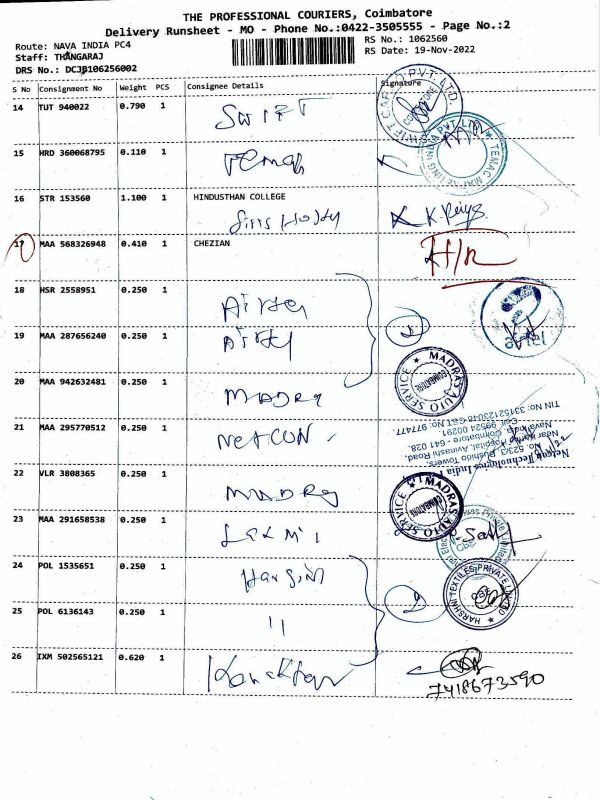 THE PROFESSIONAL COURIERS, Coimbatore
Delivery Runsheet - MO - Phone No.:0422-3505555 - Page No.:2
Route: NAVA INDIA PC4
RS No.: 1062560
Staff: THANGARAJ
RS Date: 19-Nov-2022
DRS No.: DCJB106256002
S No Consignment No Weight PCS Consignee Details Signature
14 TUT 940022 0.790 1 SWIFT
15 HRD 360068795 0.110 1
16 STR 153560 1.100 1 HINDUSTHAN COLLEGE
17 MAA 568326948 0.410 1 CHEZIAN
18 HSR 2558951 0.250 1
19 MAA 287656240 0.250 1
20 MAA 942632481 0.250 1 MADRA
MADRAS AUTO SERVICE
COIMBATORE
21 MAA 295770512 0.250 1 NETCON
Netcon Technologies India
No. 523/3, Dushido Towers,
Near Hospital, Avinashi Road,
Nava India, Coimbatore - 641 028.
Cell: 99524 00291.
TIN No: 33152123048 CST No: 977477.
22 VLR 3808365 0.250 1 MADRA
MADRAS AUTO SERVICE
COIMBATORE
23 MAA 291658538 0.250 1
24 POL 1535651 0.250 1
HARSHNI TEXTILES PRIVATE LIMITED
CBE
25 POL 6136143 0.250 1 "
26 IXM 502565121 0.620 1
7418673590